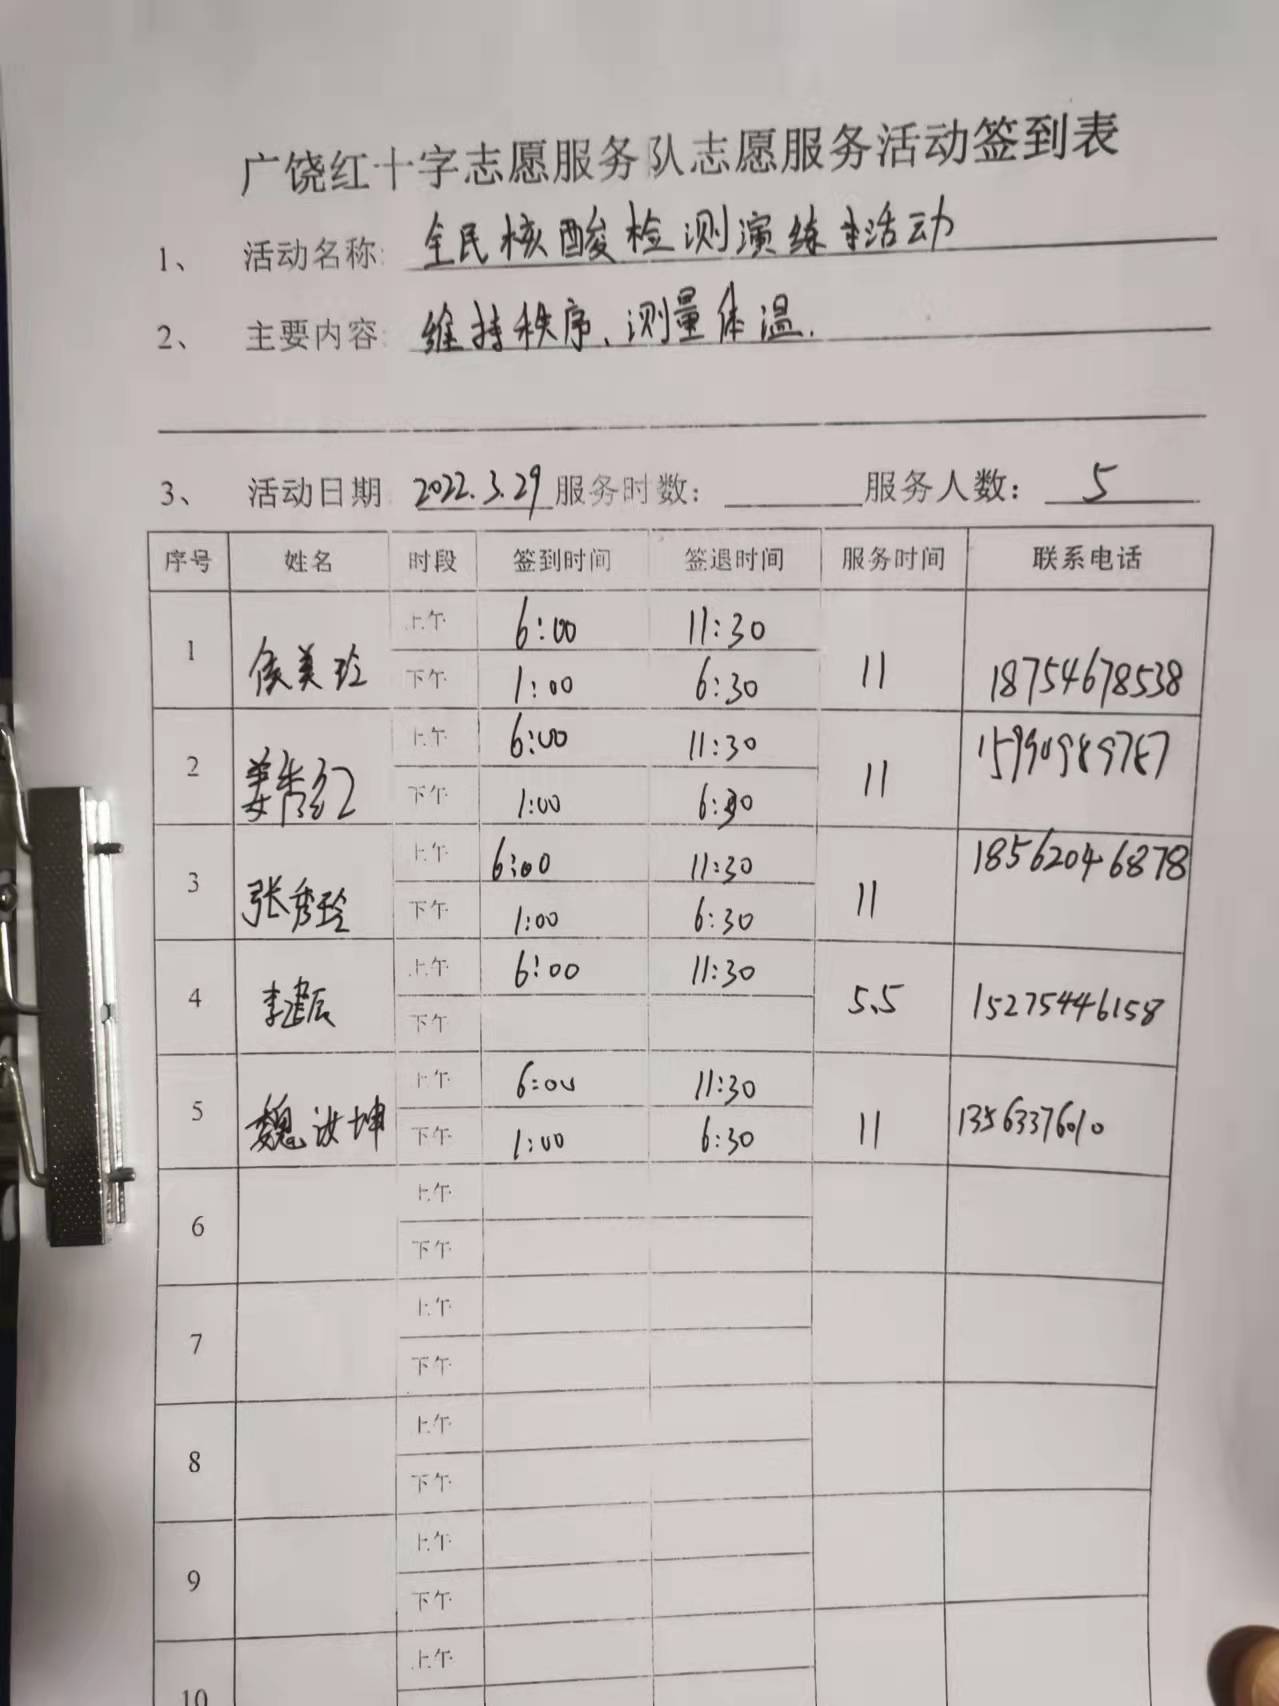 广饶红十字志愿服务队志愿服务活动签到表
1、 活动名称: 全民核酸检测演练活动
2、 主要内容: 维持秩序、测量体温.
3、 活动日期 2022.3.29 服务时数: 服务人数: 5
序号 姓名 时段 签到时间 签退时间 服务时间 联系电话
1 侯美玲 上午 6:00 11:30 11 18754678538
下午 1:00 6:30
2 上午 6:00 11:30 11
下午 1:00 6:30
3 张秀玲 上午 6:00 11:30 11 18562046878
下午 1:00 6:30
4 李建辰 上午 6:00 11:30 5.5 15275446158
下午
5 魏汝坤 上午 6:00 11:30 11 13563376010
下午 1:00 6:30
6 上午
下午
7 上午
下午
8 上午
下午
9 上午
下午
10 上午